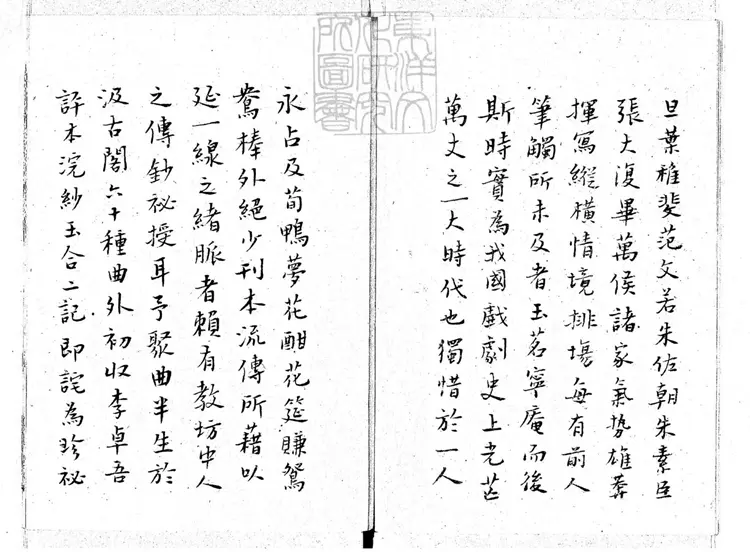 旦葉稚斐范文若朱佐朝朱素臣
張大復畢萬侯諸家氣勢雄莽
揮寫縱橫情境排場每有前人
筆觸所未及者玉茗寧庵而後
斯時實為我國戲劇史上光芒
萬丈之一大時代也獨惜於一人
永占及荀鴨夢花酣花筵賺鴛
鴦棒外絕少刊本流傳所藉以
延一線之緒脈者賴有教坊中人
之傳鈔祕授耳予聚曲半生於
汲古閣六十種曲外初收李卓吾
評本浣紗玉合二記即詫為珍祕
東洋文
化研究
所圖書